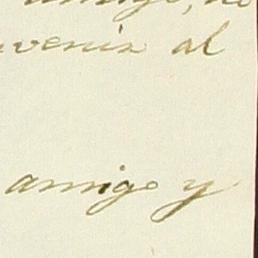 amigo, no
venir al
amigo y